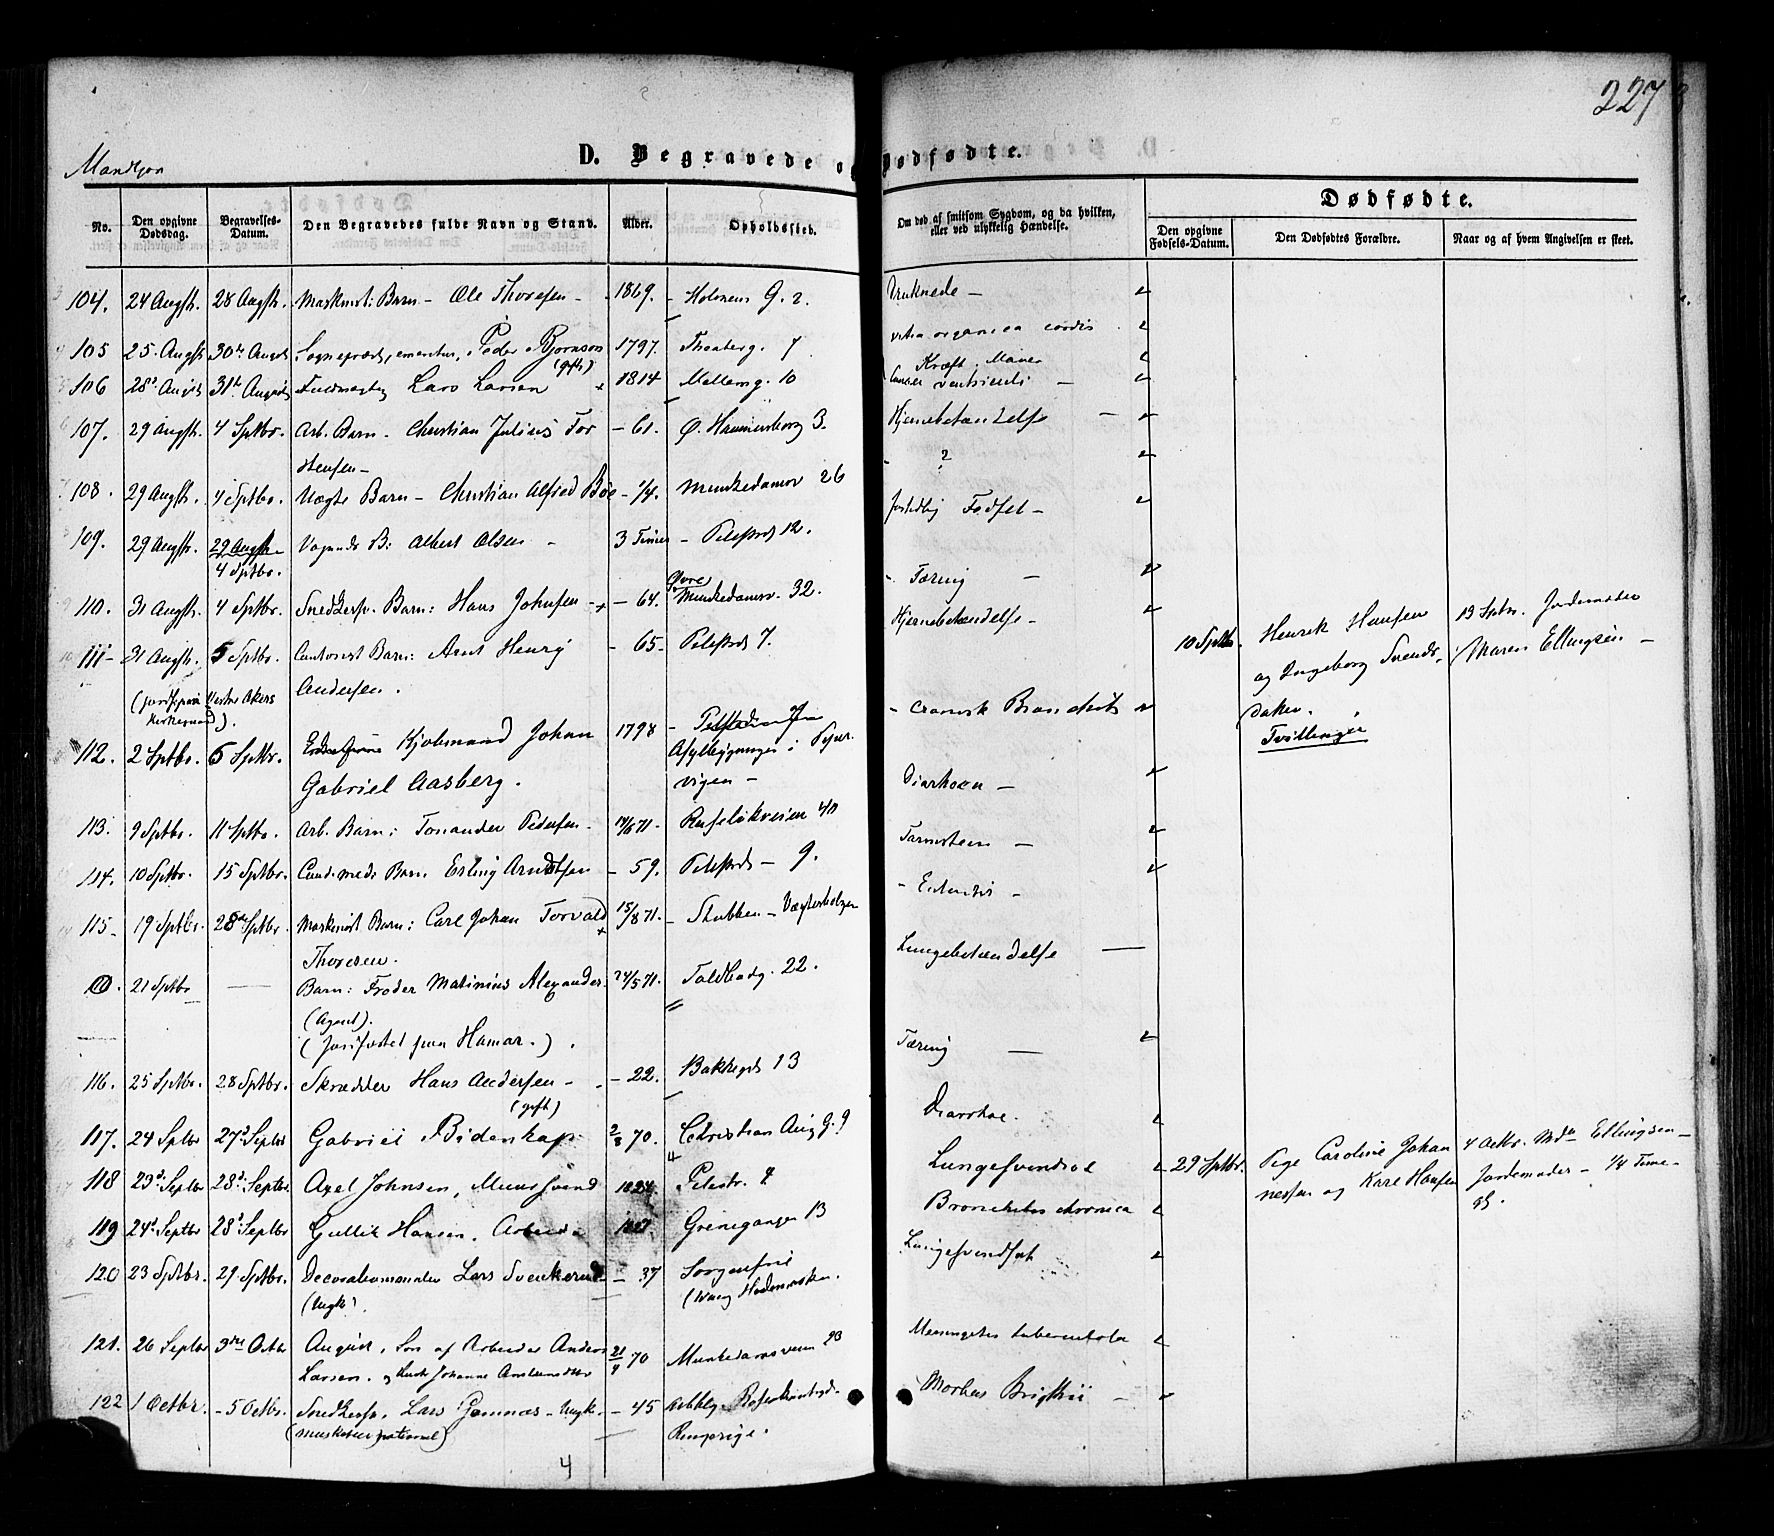 227
Mandkjøn
D. Begravede og Dødfødte.
No.
Den opgivne Dødsdag.
Begravelses-Datum.
Den Begravedes fulde Navn og Stand.
Alder.
Opholdssted.
Om død af smitsom Sygdom, og da hvilken, eller ved ulykkelig Hændelse.
Dødfødte.
Den opgivne Fødsels-Datum.
Den Dødfødtes Forældre.
Naar og af hvem Angivelsen er skeet.
104. 24 Augstr. 28 Augstr. Maskinist: Barn - Ole Thoresen - 1869. - Holmens G. 2. Druknede -
105 25. Augstr 30te Augst Sognepræst, emeritus, Peder Bjørnson (gift) 1797. Theaterg. 7 vitia organica cordis
106 28de Augst 31te Augst Fuldmægtig Lars Larsen 1814 Mellemg. 10 Kræft, Maven
Cancer ventriculi -
107. 29 Augstr. 4 Sptbr. Arb. Barn - Christian Julius Tor - 61. Ø. Hammersborg 3. Hjernebetændelse -
stensen - ?
108. 29 Augstr. 4 Sptbr. Uægte Barn - Christian Alfred Bøe - 1/4. Munkedamsv 26
109. 29 Augstr. 29 Augstr. 4 Sptbr. Vognmds B: Albert Olsen - 3 Timer - Pilestræd 12. fortidlig Fødsel -
110. 31 Augstr. 4 Sptbr. Snedkersv. Barn: Hans Johnsen - 64. Øvre Munkedamsv. 32. - Tæring -
111 - 31 Augstr. 5 Sptbr. Cantorist Barn: Arnt Henry - 65 - Pilestræd 7. Hjernebetændelse -
Andersen.
(jordf. paa Vestre Akers Kirkegaard).
10 Sptbr. Henrik Hansen 13 Sptbr. Jordemoder
og Ingeborg Svends Maren Ellingsen -
datter.
Tvillinger
112. 2 Sptbr. 5 Sptbr. Kjøbmand Johan 1798 - Asylbygningen i Piper
Gabriel Aasberg. vigen -
- cronisk Bronchitis
113. 9 Sptbr. 11 Sptbr. Arb. Barn: Tonander Pedersen - 14/6 71. Ruseløkveien 40 Diarhoea -
114. 10 Sptbr. 15 Sptbr. Barn. Erling Arntsen - 59. Pilestræd - 9. Tarmsteen -
115 - 19 Sptbr. 28de Sptbr. Maskinist Barn: Carl Johan Torvald 15/8 71. - Stubben - Vægterboligen - Enteritis -
Thoresen.
21 Sptbr - Barn: Froder Matinius Alexander. 24/5 71. Toldbodg. 22. Lungebetændelse -
(Agent).
(jordfæstet paa Hamar.).
116. 25 Sptbr. 28 Sptbr. Skrædder Hans Andersen - - 22. Bakkegd 13 Tæring -
(gift)
117. 24 Sptbr 27de Septbr Gabriel Bidenkap 2/8 70. Christian Aug G. 9 Diarrhoe.
118 23de Septbr 28de Septbr. Axel Johnsen, Muursvend 1824. Pilestr. 4 Lungesvindsot
29 Sptbr. Pige Caroline Johan 4 Octbr. Md Ellingsen -
nessen og Karl Hansen Jordemoder - 1/4 Time
119 24de Septbr 28de Septbr Gullik Hansen, Arbeider Grønegangen 13 Bronchitis chronica
120 23 Sptbr. 29 Sptbr. Decorationsmaler Lars Svenkerud - 37 Sorgenfri Lungesvindsot
(Ungk).
121. 26 Septbr 3die Octbr August, Søn af Arbeider Anders 21/9 70 Munkedamsveien 23 Meningitis tuberculosa
Larsen. og Hust Johanne
122 1 Octbr. - 5 Octbr. Snedkersv. Lars Gamnæs - Ungk. - 45 Morbus Brigthii -
Ringerige.
4